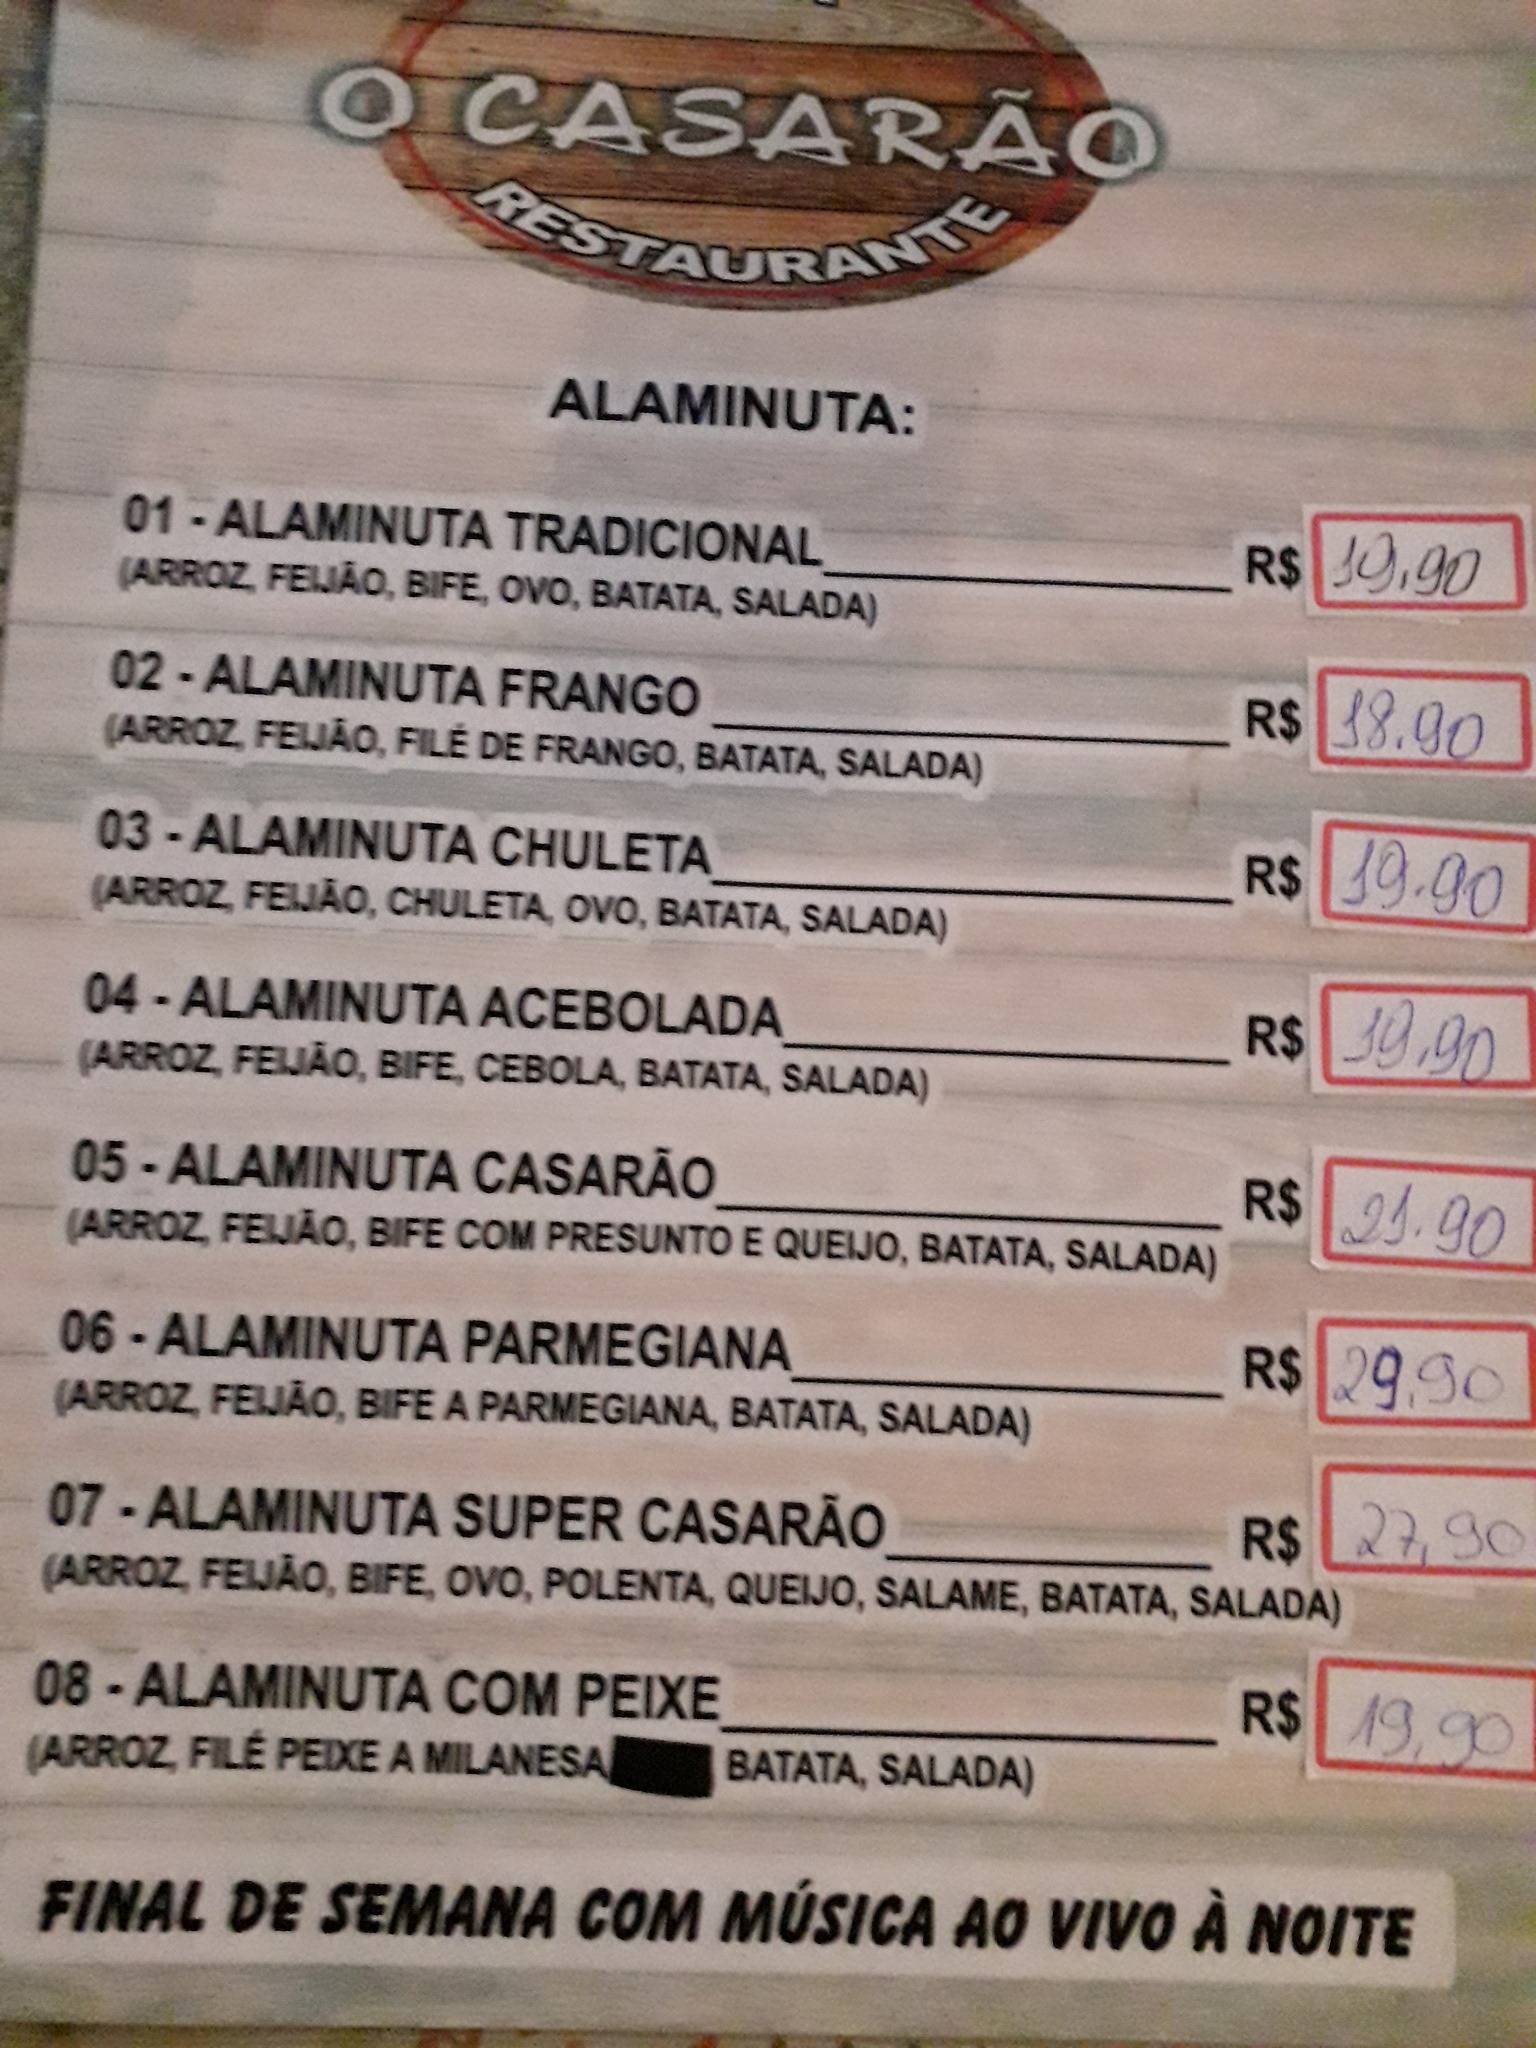 O CASARÃO
RESTAURANTE
ALAMINUTA:
01 - ALAMINUTA TRADICIONAL R$ 19,90
(ARROZ, FEIJÃO, BIFE, OVO, BATATA, SALADA)
02 - ALAMINUTA FRANGO R$ 18,90
(ARROZ, FEIJÃO, FILÉ DE FRANGO, BATATA, SALADA)
03 - ALAMINUTA CHULETA R$ 19.90
(ARROZ, FEIJÃO, CHULETA, OVO, BATATA, SALADA)
04 - ALAMINUTA ACEBOLADA R$ 19,90
(ARROZ, FEIJÃO, BIFE, CEBOLA, BATATA, SALADA)
05 - ALAMINUTA CASARÃO R$ 21.90
(ARROZ, FEIJÃO, BIFE COM PRESUNTO E QUEIJO, BATATA, SALADA)
06 - ALAMINUTA PARMEGIANA R$ 29,90
(ARROZ, FEIJÃO, BIFE A PARMEGIANA, BATATA, SALADA)
07 - ALAMINUTA SUPER CASARÃO R$ 27,90
(ARROZ, FEIJÃO, BIFE, OVO, POLENTA, QUEIJO, SALAME, BATATA, SALADA)
08 - ALAMINUTA COM PEIXE R$ 19,90
(ARROZ, FILÉ PEIXE A MILANESA BATATA, SALADA)
FINAL DE SEMANA COM MÚSICA AO VIVO À NOITE